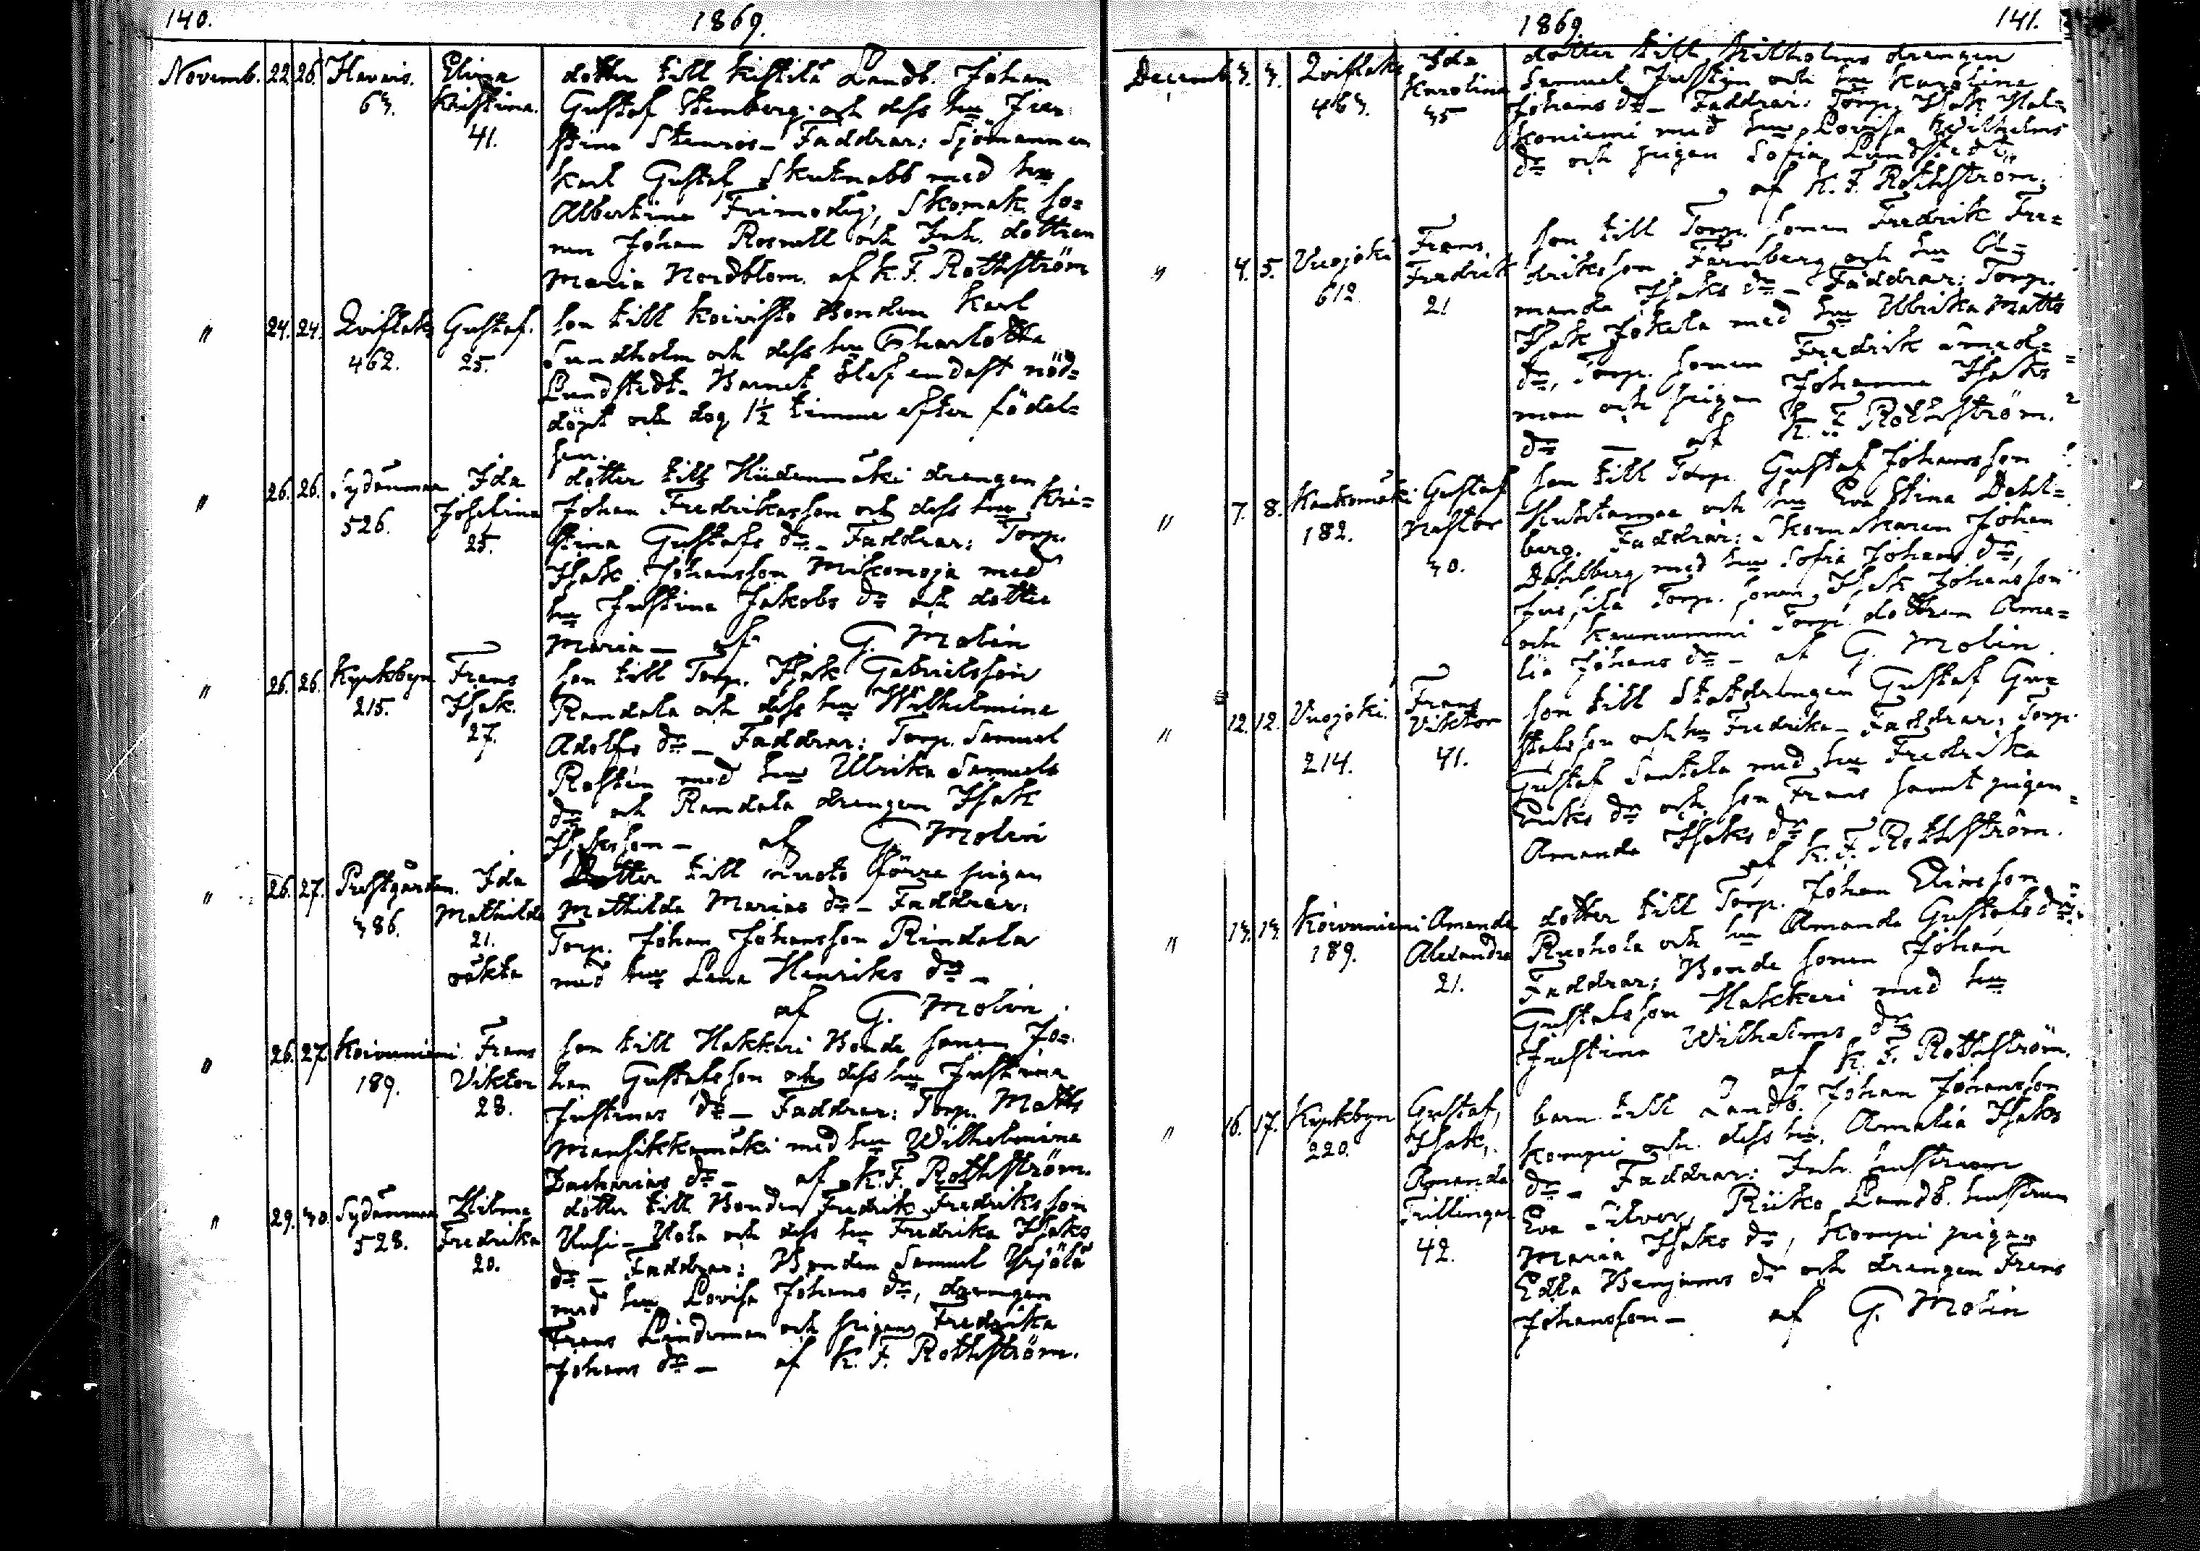 140.
1869.
Novemb. 22. 26. Havais. Elina dotter till Kistilä Landb. Johan
63. Kristina. Gustaf Stenberg och dess hu
41. Stina Stenros – Faddrar: Sjömannen
Karl Gustaf Skutnabb med hu
Albertina Frimodig, Skomak. so-
nen Johan Rosvall och Inh. dottren
Maria Nordblom. af K. F. Rothström
" 24. 24. Qviflaks Gustaf. son till Koivisto Bonden Karl
462. 25. Sundholm och dess hu Charlotta
Lundstedt. Barnet blef endast nöd-
döpt och dog 1½ timme efter födel-
sen.
" 26. 26. Sydänmaa Ida dotter till Hiidenmäki drengen
526. Josefina Johan Fredriksson och dess hu Kri-
25. stina Gustafs dr – Faddrar: Torp.
Isak Johansson Mikonoja med
hu Justina Jakobs dr och dotter
Maria – af G. Molin
" 26. 26. Kyrkbyn Frans son till Torp. Isak Gabrielsson
215. Isak. Randala och dess hu Wilhelmina
27. Adolfs dr – Faddrar: Torp. Samuel
Rostén med hu Ulrika Samuels
dr och Randala drengen Isak
Isaksson – af G. Molin
" 26. 27. Prestgården. Ida Dotter till förra pigan
386. Mathilda Mathilda Marias dr – Faddrar:
21. Torp. Johan Johansson Rindala
oäkta med hu Lena Henriks dr –
af G. Molin.
" 26. 27. Koivuniemi Frans son till Hakkeri Bonde sonen Jo-
189. Viktor han Gustafsson och dess hu Justina
28. Justinas dr – Faddrar: Torp. Matts
Mansikkamäki med hu Wilhelmina
Zacharias dr – af K. F. Rothström.
" 29. 30. Sydänmaa Hilma dotter till Bonden Fredrik Fredriksson
528. Fredrika Uusi-Uola och dess hu Fredrika Isaks
20. dr – Faddrar: Bonden Samuel Yrjölä
med hu Lovisa Johans dr, drengen
Frans Lindroman och pigan Fredrika
Johans dr – af K. F. Rothström.
1869.
141.
Decemb. 3. 3. Qviflaks Ida dotter till drengen
463. Karolina Samuel Justén och hu Karolina
35 Johans dr – Faddrar: Torp. Isak Hal-
koniemi med hu Lovisa Wilhelms
dr och pigan Sofia Lundstedt.
af K. F. Rothström.
" 4. 5. Vuojoki Frans son till Torp. sonen Fredrik Fre-
612. Fredrik driksson Farnberg och hu A-
21 manda Isaks dr – Faddrar: Torp.
Isak Jokela med hu Ulrika Matts
dr, Torp. sonen Fredrik
man och pigan Johanna Isaks
dr – af K. F. Rothström.
" 7. 8. Kaukomäki Gustaf son till Torp. Gustaf Johansson
182. Nestor och hu Eva Stina Dahl-
30. berg. Faddrar: Skomakaren Johan
Dahlberg med hu Sofia Johans dr,
Torp. sonen Isak Johansson
och Kaunummi Torp. dottren Ama-
lia Johans dr – af G. Molin.
" 12. 12. Vuojoki. Frans son till Statdrengen Gustaf Gu-
214. Viktor stafsson och hu Fredrika – Faddrar: Torp.
41. Gustaf Santala med hu Fredrika
Eriks dr och son Frans samt pigan
Amanda Isaks dr
af K. F. Rothström.
" 13. 13. Koivuniemi Amanda dotter till Torp. Johan Eliasson
189. Alexandra Ruohola och hu Amanda Gustafs dr.
21. Faddrar: Bonde sonen Johan
Gustafsson Hakkeri med hu
Justina Wilhelms dr
af K. F. Rothström.
" 16. 17. Kyrkbyn Gustaf, barn till Landb. Johan Johansson
220. Isak, Kompi och dess hu Amalia Isaks
Amanda dr – Faddrar: Inh. hustrun
Trillingar Eva Silver, Riiko Landb. hustrun
42. Maria Isaks dr, Kompi pigan
Edla Benjams dr och drengen Frans
Johansson – af G. Molin